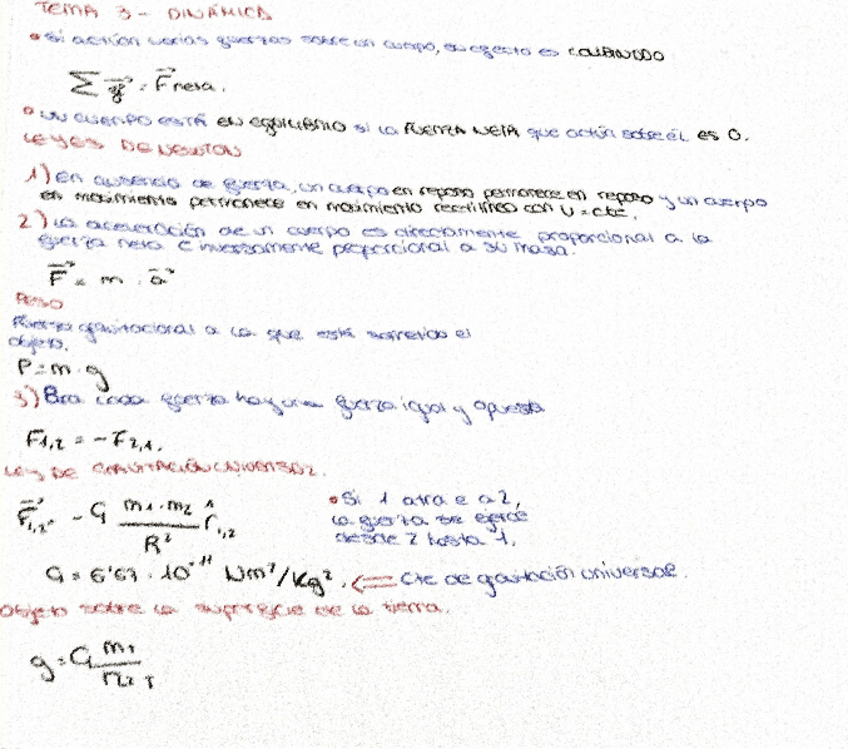 TEMA 3 - DINÁMICA
• Si actúan varias fuerzas sobre un cuerpo, su efecto es COMBINADO
∑ F⃗ = F⃗ neta.
• UN CUERPO ESTÁ EN EQUILIBRIO si la FUERZA NETA que actúa sobre él es 0.
LEYES DE NEWTON
1) En ausencia de fuerza, un cuerpo en reposo permanece en reposo y un cuerpo
en movimiento permanece en movimiento rectilíneo con v = cte.
2) La aceleración de un cuerpo es directamente proporcional a la
fuerza neta e inversamente proporcional a su masa.
F⃗ = m · a⃗
PESO
Fuerza gravitacional a la que está sometido el
objeto.
P = m · g
3) Para cada fuerza hay una fuerza igual y opuesta
F1,2 = -F2,1.
LEY DE GRAVITACIÓN UNIVERSAL.
F⃗1,2 = - G m1 · m2 / R² r̂1,2
• Si 1 atrae a 2,
la fuerza se ejerce
desde 2 hasta 1.
G = 6'67 · 10⁻¹¹ Nm²/Kg². ⇐ Cte de gravitación universal.
Objeto sobre la superficie de la tierra.
g = G